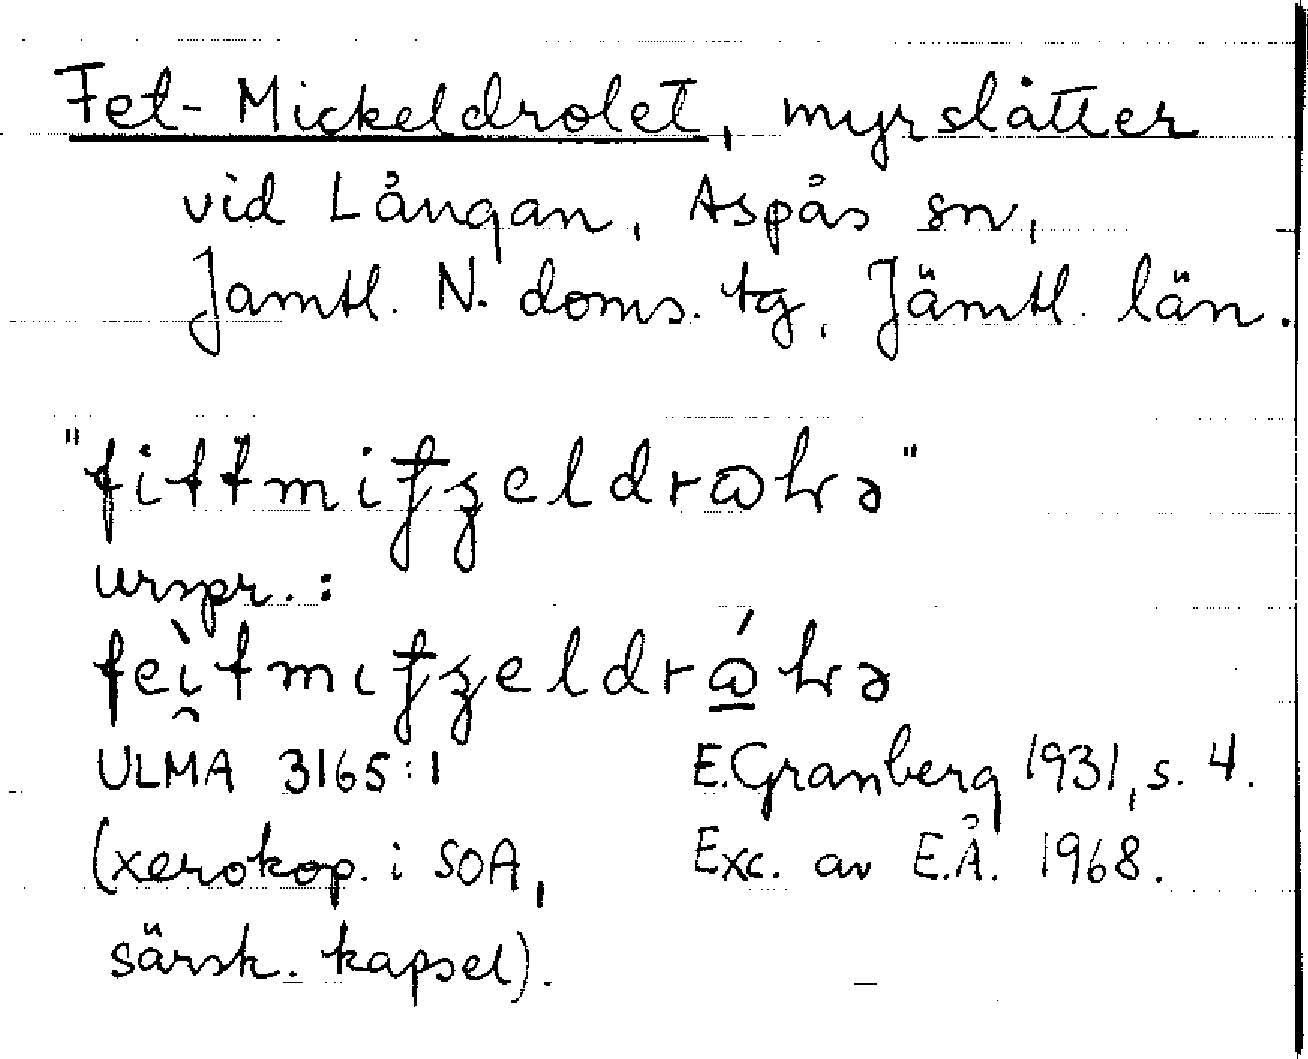 Fet-Mickeldrolet, myrslåtter
vid Långan, Aspås sn,
Jämtl. N. doms. tg, Jämtl. län.
urspr.:
ULMA 3165:1 E.Granberg 1931, s. 4.
(xerokop. i SOA, Exc. av E.Å. 1968.
särsk. kapsel).